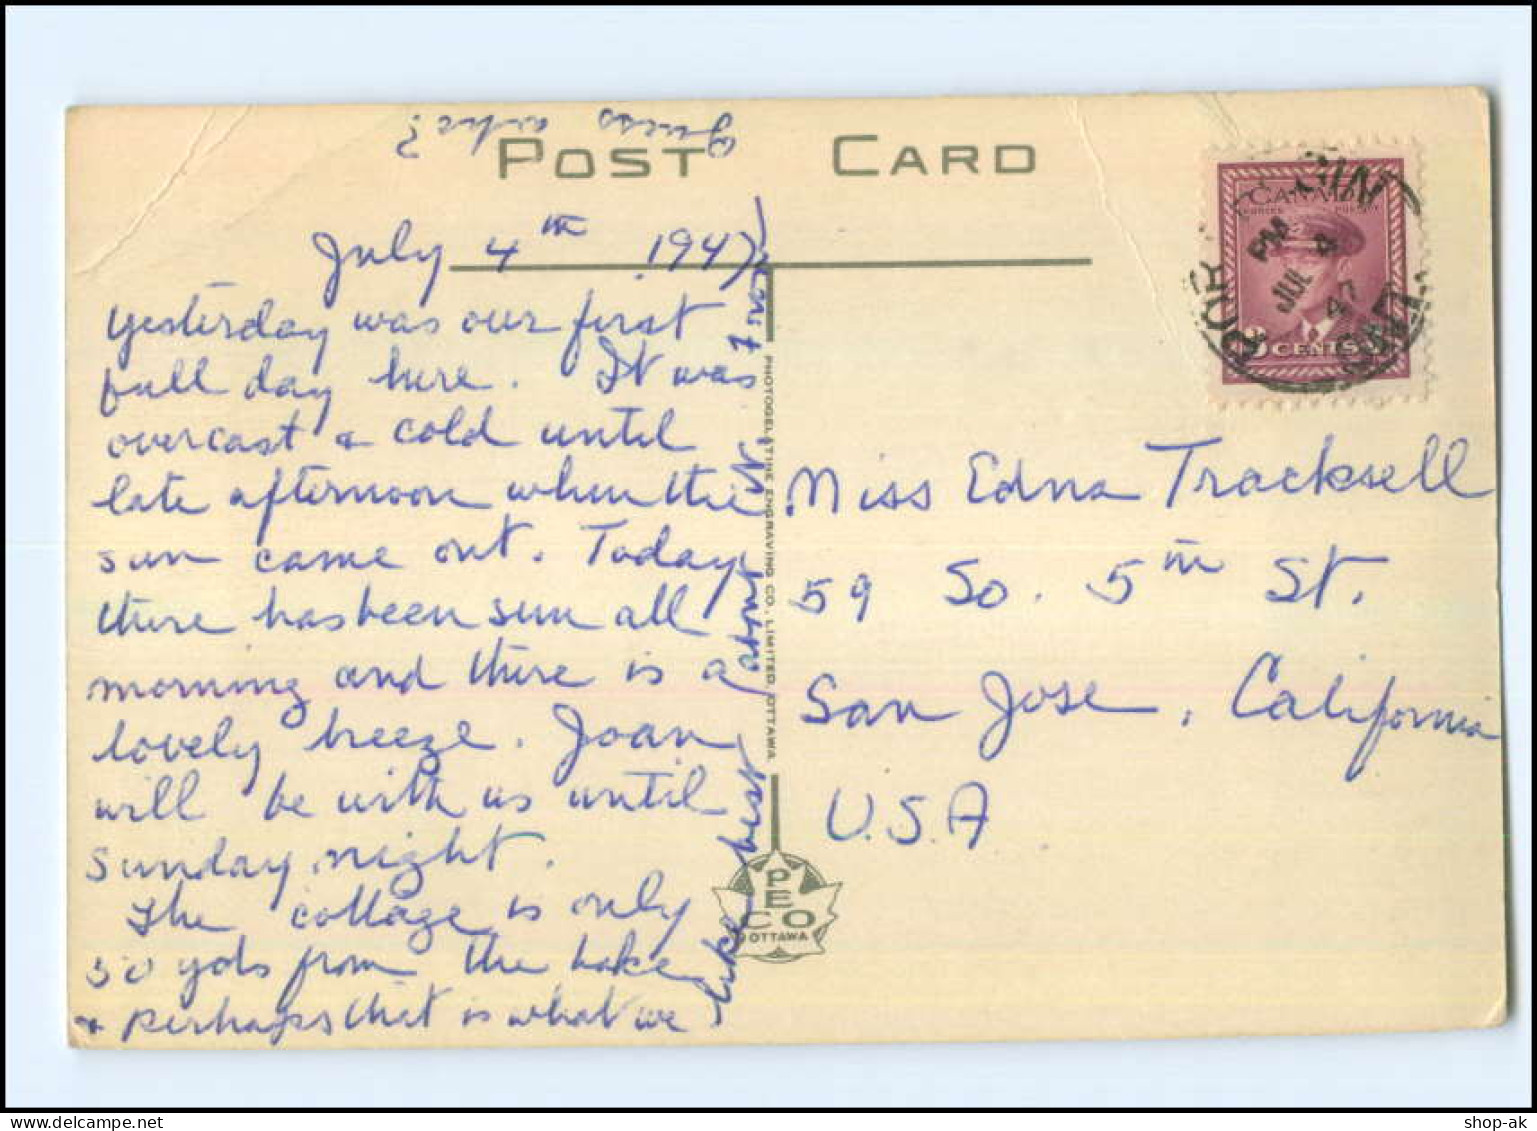 POST CARD
July 4th 1947
Yesterday was our first
full day here. It was
overcast & cold until
late afternoon when the
sun came out. Today
there has been sun all
morning and there is a
lovely breeze. Joan
will be with us until
Sunday night.
The cottage is only
50 yds from the Lake
& perhaps that is what we
like best about it.
Guess who?
PHOTOGELATINE ENGRAVING CO., LIMITED, OTTAWA
PECO
OTTAWA
CANADA
CENTS
PM
JUL 4
47
Miss Edna Tracksell
59 So. 5th St.
San Jose, California
U.S.A
shop-ak